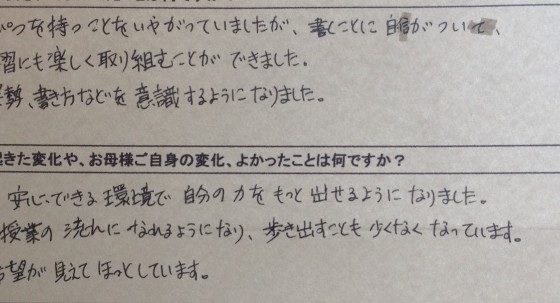 ぴつを持つことをいやがっていましたが、書くことに自信がついて、
習にも楽しく取り組むことができました。
勢、書き方などを意識するようになりました。
きた変化や、お母様ご自身の変化、よかったことは何ですか？
安心できる環境で自分の力をもっと出せるようになりました。
授業の流れになれるようになり、歩き出すことも少くなくなっています。
望が見えてほっとしています。